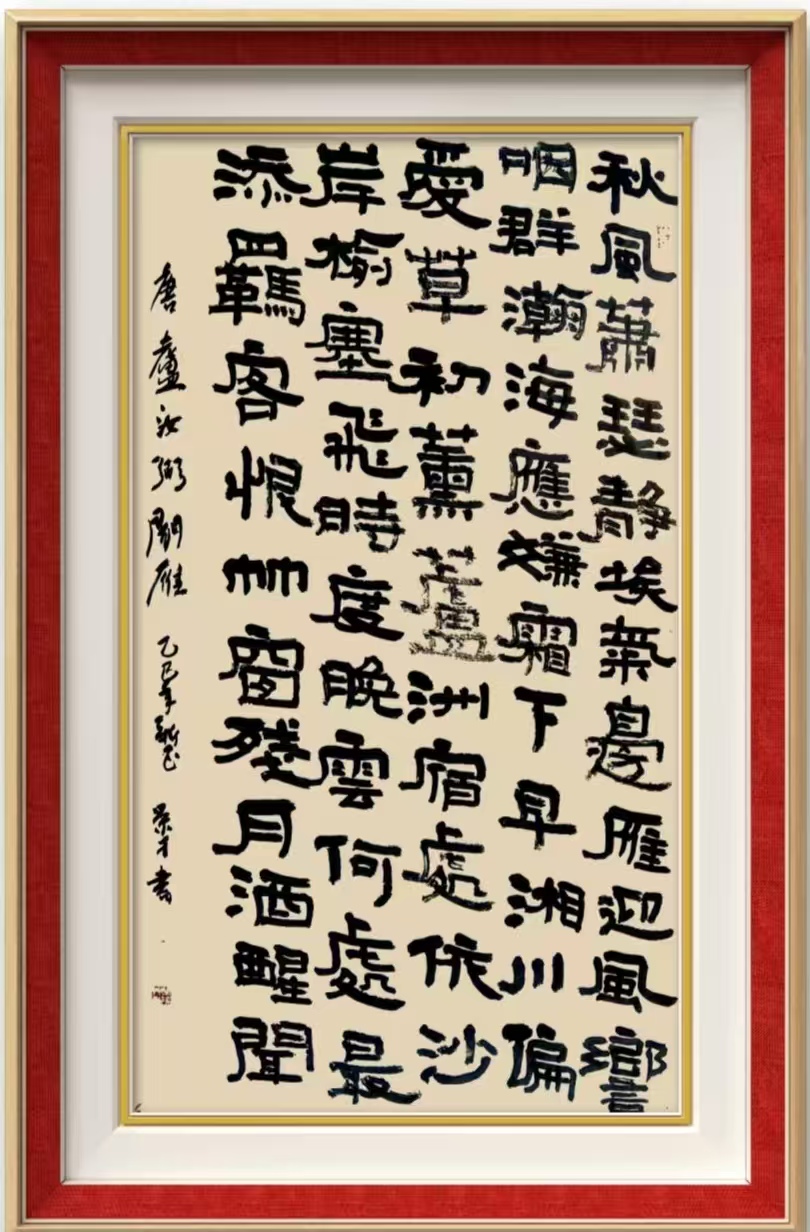 秋風蕭瑟静埃氣邊雁迎風響
咽群瀚海應嫌霜下早湘川偏
愛草初薰蘆洲宿處依沙
岸榆塞飛時度晚雲何處最
添羈客恨竹窗殘月酒醒聞
唐盧汝弼聞雁 乙巳年新正 景才書